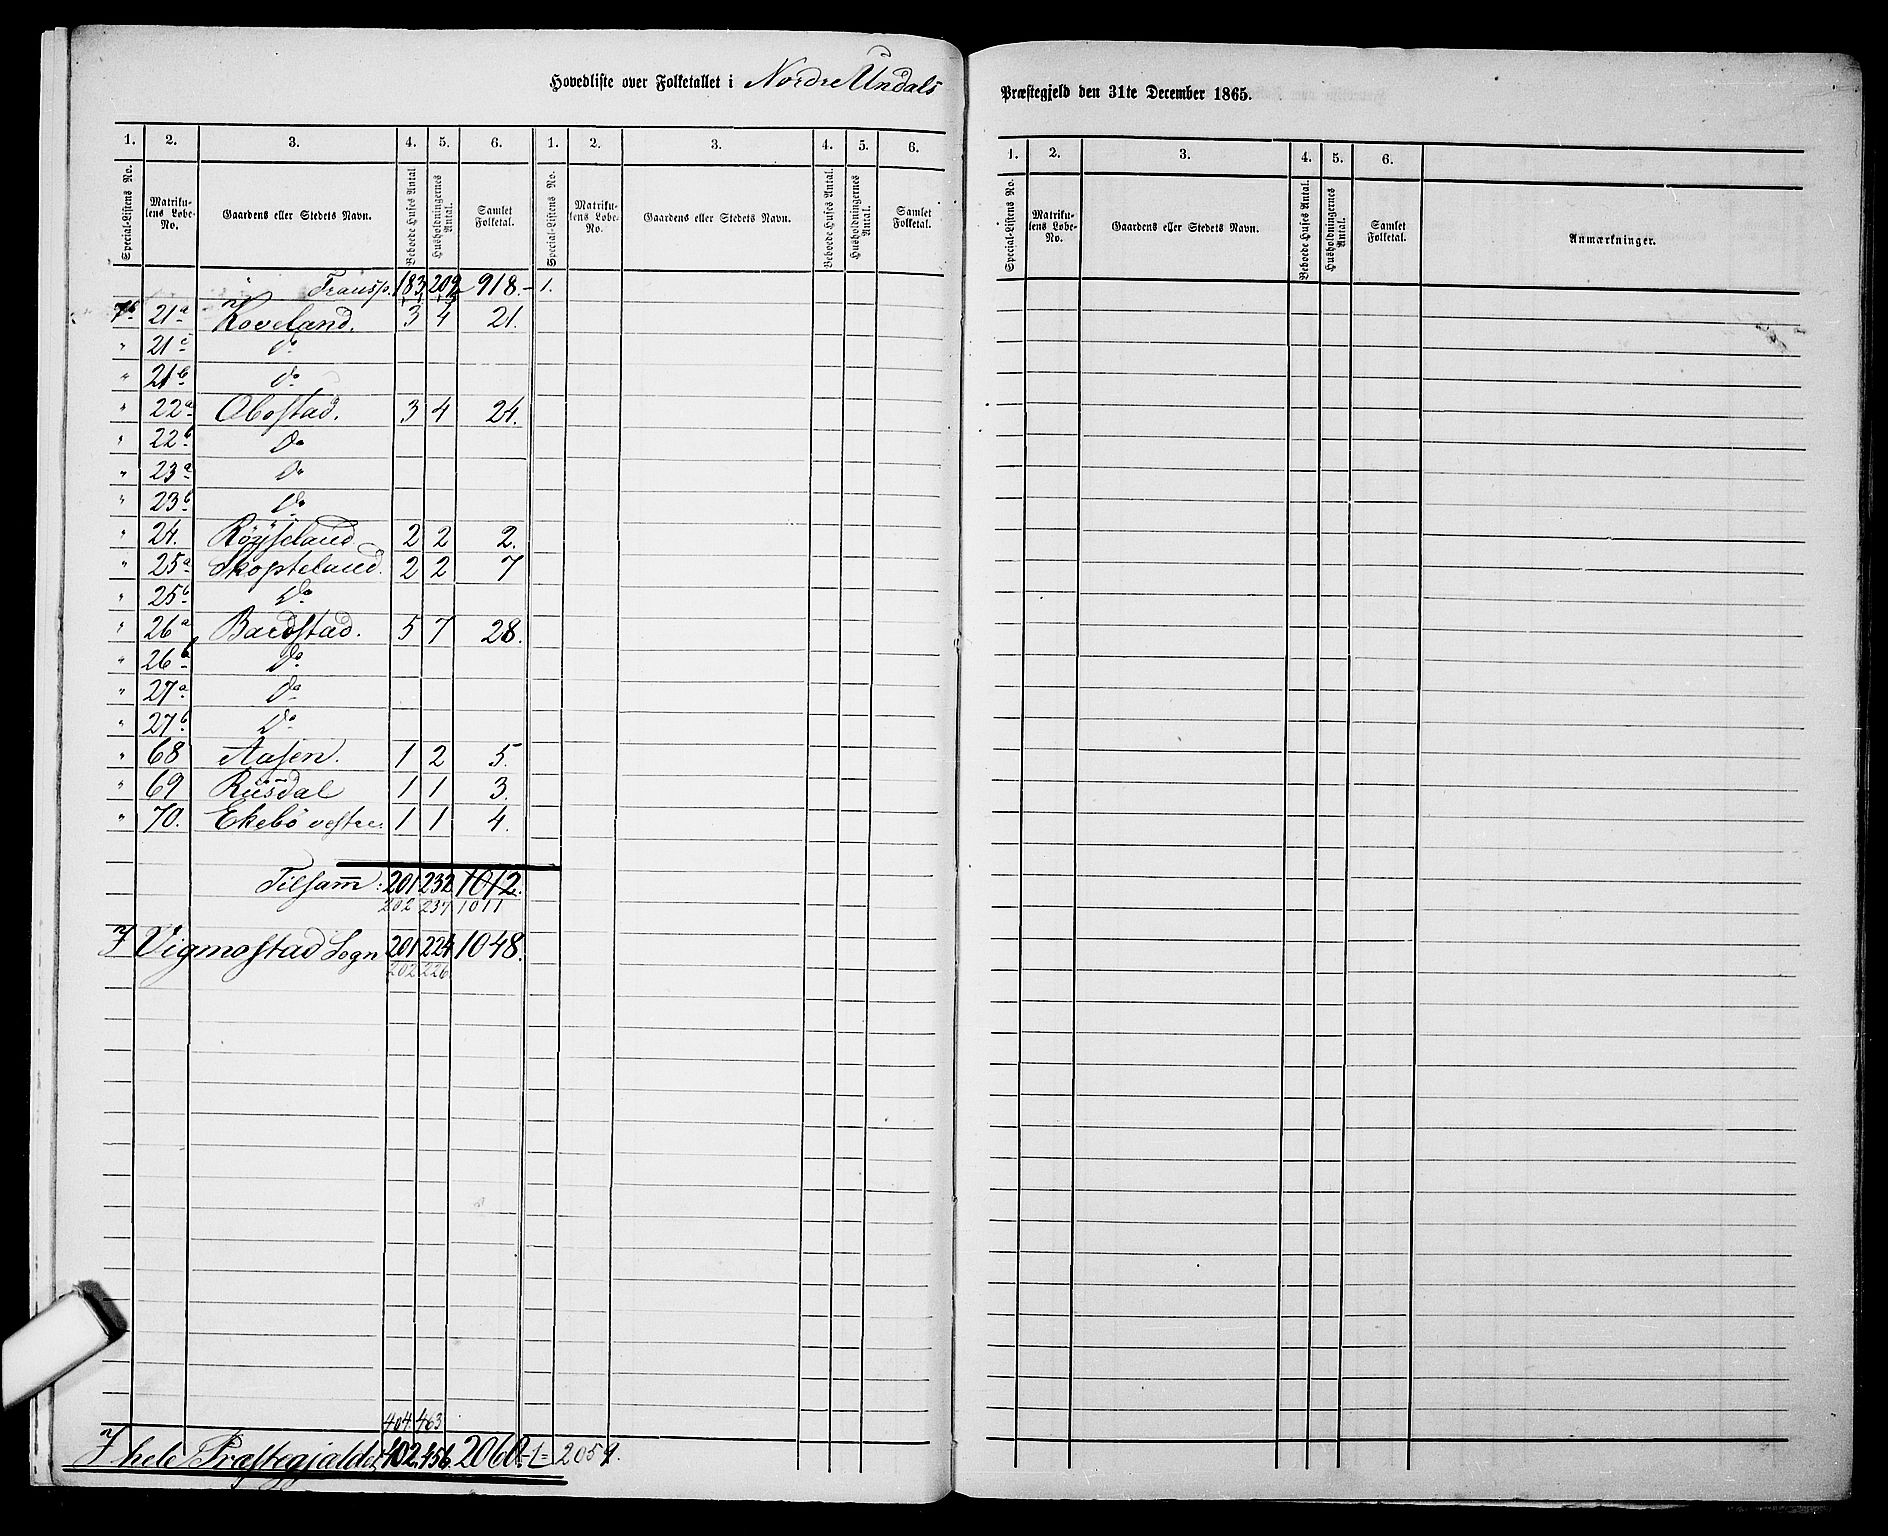 Hovedliste over Folketallet i Nordre Undals
1. 2. 3. 4. 5. 6. 1. 2. 3. 4. 5. 6.
Special-Listens No. Matrikulens Løbe-No. Gaardens eller Stedets Navn. Beboede Huses Antal Husholdningernes Antal. Samlet Folketal. Special-Listens No. Matrikulens Løbe-No. Gaardens eller Stedets Navn. Beboede Huses Antal. Husholdningernes Antal. Samlet Folketal.
Transp. 183 209 918. - 1.
21a Koveland. 3 4 21.
" 21c do
" 21b do
" 22a Obostad. 3 4 24.
" 22b do
" 23a do
" 23b do
" 24. Röyseland 2 2 2.
" 25a Skopteland. 2 2 7
" 25b do
" 26a Baerstad. 5 7 28.
" 26b do
" 27a do
" 27b do
" 68 Aasen. 1 2 5.
" 69 Riisdal 1 1 3.
" 70. Ekebö vestre. 1 1 4.
Tilsam: 201 232 1012.
202 237 1011
I Vigmostad Sogn 201 224 1048.
202 226
404. 463
I hele Præstegjældet 402. 456. 2060. -1 = 2059.
Præstegjeld den 31te December 1865.
1. 2. 3. 4. 5. 6.
Special-Listens No. Matrikulens Løbe-No. Gaardens eller Stedets Navn. Beboede Huses Antal. Husholdningernes Antal. Samlet Folketal. Anmærkninger.